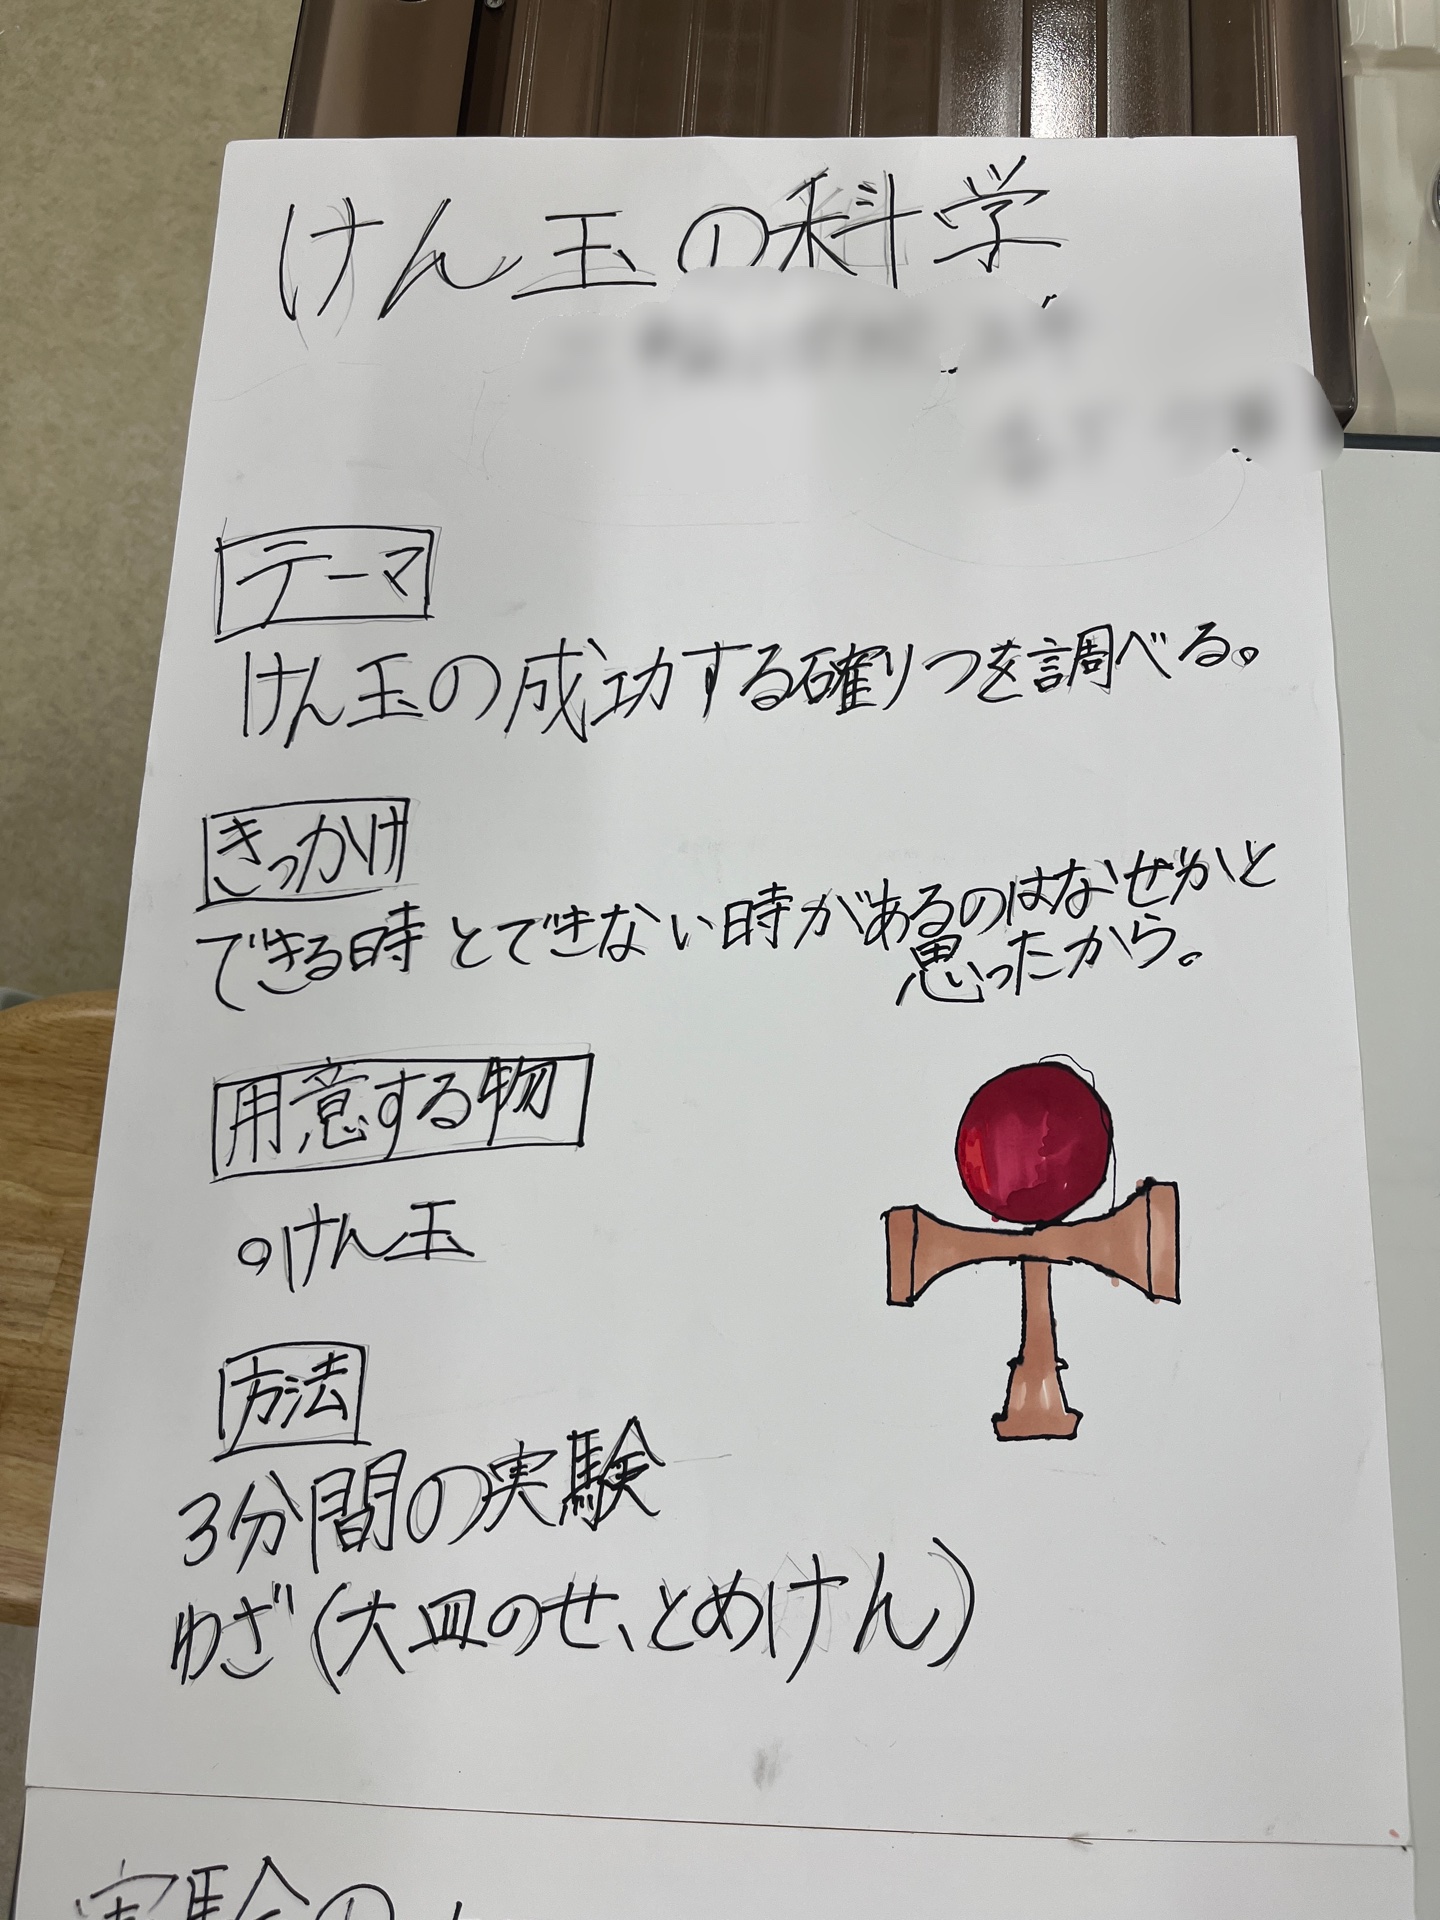 けん玉の科学
テーマ
けん玉の成功する確りつを調べる。
きっかけ
できる時とできない時があるのはなぜかと
思ったから。
用意する物
○けん玉
方法
3分間の実験
わざ(大皿のせ、とめけん)
実験の